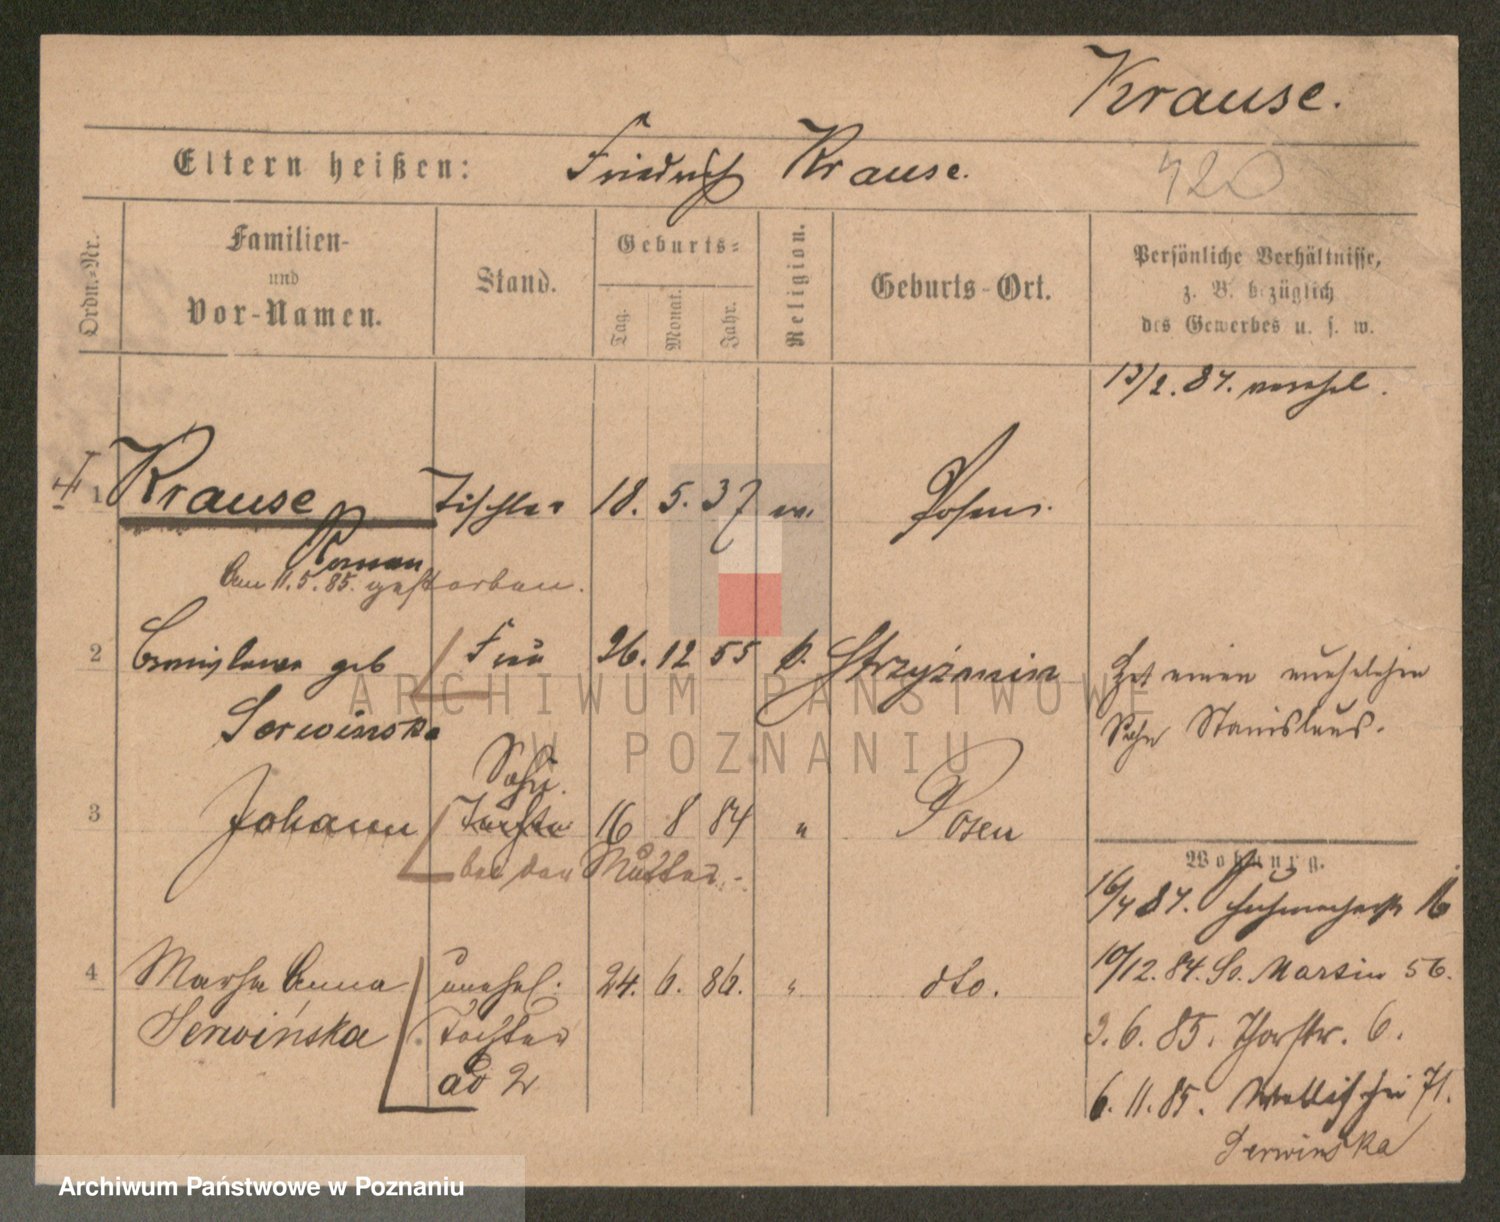 Krause.
Eltern heißen: Friedrich Krause.
420
Ordn.-Nr.
Familien-
und
Vor-Namen.
Stand.
Geburts-
Tag.
Monat.
Jahr.
Religion.
Geburts-Ort.
Persönliche Verhältnisse,
z. B. bezüglich
des Gewerbes u. s. w.
13/2.84. verehel.
1 Krause Tischler 18. 5. 37 Posen.
Roman
Am 11.5.85. gestorben.
2 geb Frau 26. 12 55 k. Strzyżmin
Serwinska
Hat einen unehelichen
Sohn Stanislaus.
Sohn.
3 Johann Tochter 16 8 84 " Posen
bei der Mutter.-
Wohnung.
16/4 84. Schuhmacherstr 16
10/12.84. St. Martin 56.
3.6.85. Thorstr. 6.
6.11.85. Wallischei 71.
Serwinska
4 Marha Anna unehel. 24. 6. 86. " dto.
Serwińska Tochter
ad 2
ARCHIWUM PAŃSTWOWE
W POZNANIU
Archiwum Państwowe w Poznaniu